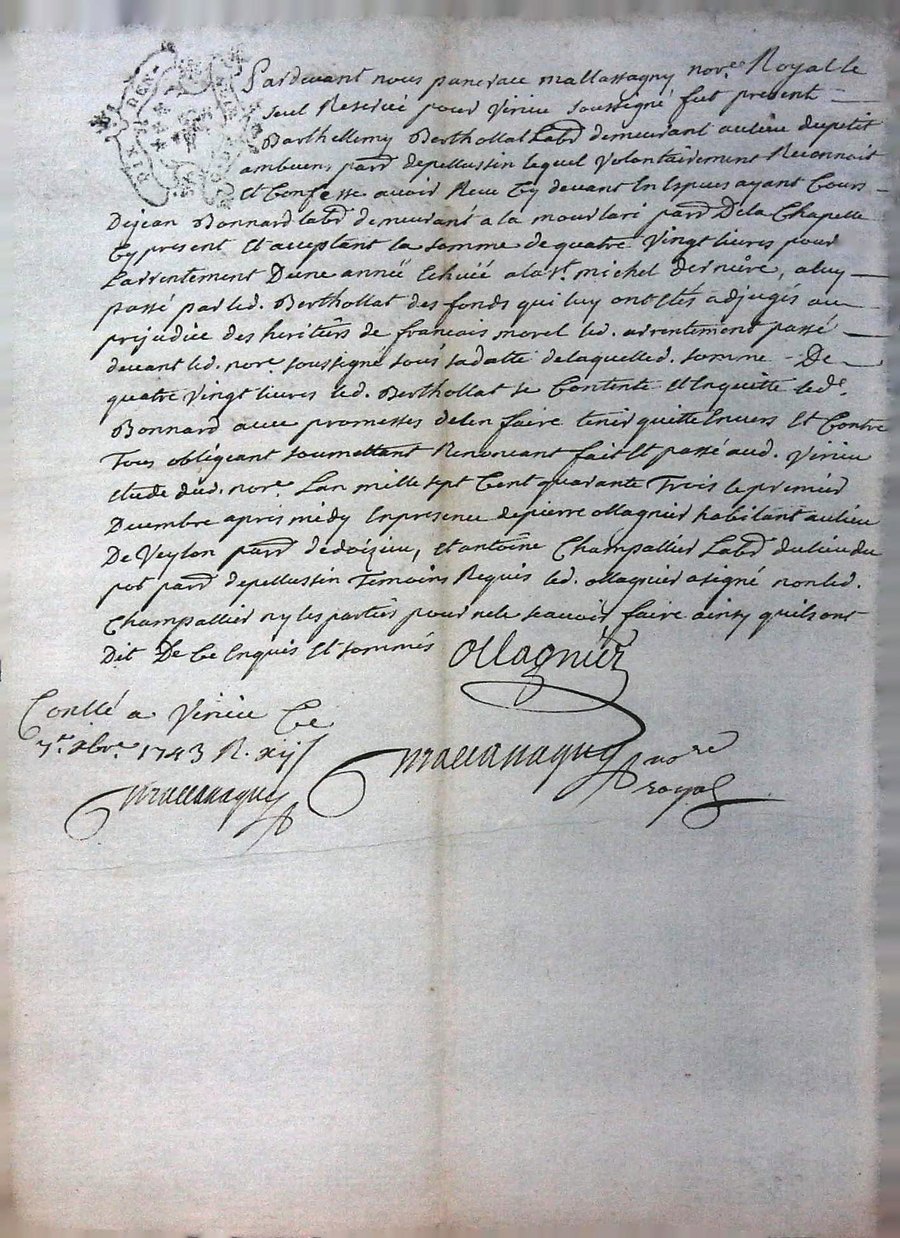 Pardevant nous pancrace mallassagny nore. Royal le
seul Reservé pour Virieu soussigné fut present
Barthellemy Berthollat Labr demeurant au lieu du petit
ambuen, parr depellussin lequel Volontairement Reconnoit
Et Confesse avoir Receu Cy devant En Especes ayant Cours
De jean Bonnard labr demeurant a la mourlari parr De la Chapelle
Cy present Et acceptant la somme de quatre Vingt livres pour
Larrentement D'une année Echuëe a la st. michel derniere, a luy
passé par led. Berthollat des fonds qui luy ont étés adjugés au
préjudice des heritiers de francois morel led. arrentement passé
devant led. nore. soussigné sous sa datte de laquelle d. somme De
quatre Vingt livres led. Berthollat se Contente Et En quitte led.
Bonnard avec promesses de l'en faire tenir quitte Envers Et Contre
Tous obligeant soumettant Renoncant fait Et passé aud. Virieu
étude dud. nore. L'an mille sept Cent quarante Trois le premier
Decembre apres midy En presence de pierre ollagnier habitant au lieu
De Veylon parr dedoizieu, et antoine Champallier Labr du lieu du
pot parr depellussin Temoins Requis led. ollagnier a signé non led.
Champallier ny les parties pour ne le scavoir faire ainsy quils ont
Dit De Ce Enquis Et sommés Ollagnier
Conllé a Virieu Ce
7e. xbre. 1743 R. xij s
mallassagny nore
royal
mallassagny